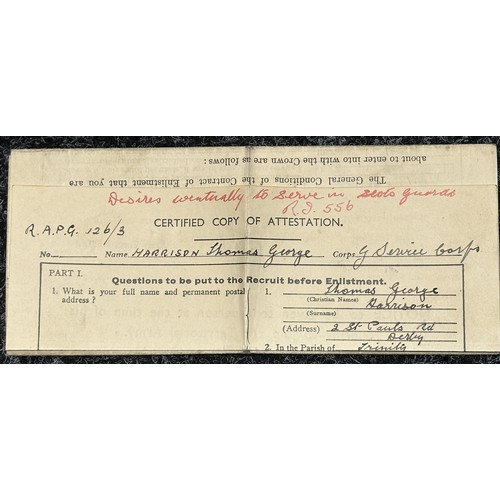 about to enter into with the Crown are as follows :
The General Conditions of the Contract of Enlistment that you are
Desires eventually to serve in Scots Guards
R.J. 556
CERTIFIED COPY OF ATTESTATION.
R.A.P.G. 126/3
No. Name HARRISON Thomas George Corps G Service Corps
PART I.
Questions to be put to the Recruit before Enlistment.
1. What is your full name and permanent postal address ?
1. Thomas George
(Christian Names)
Harrison
(Surname)
(Address) 2 St Pauls Rd
Derby
2. In the Parish of Trinity